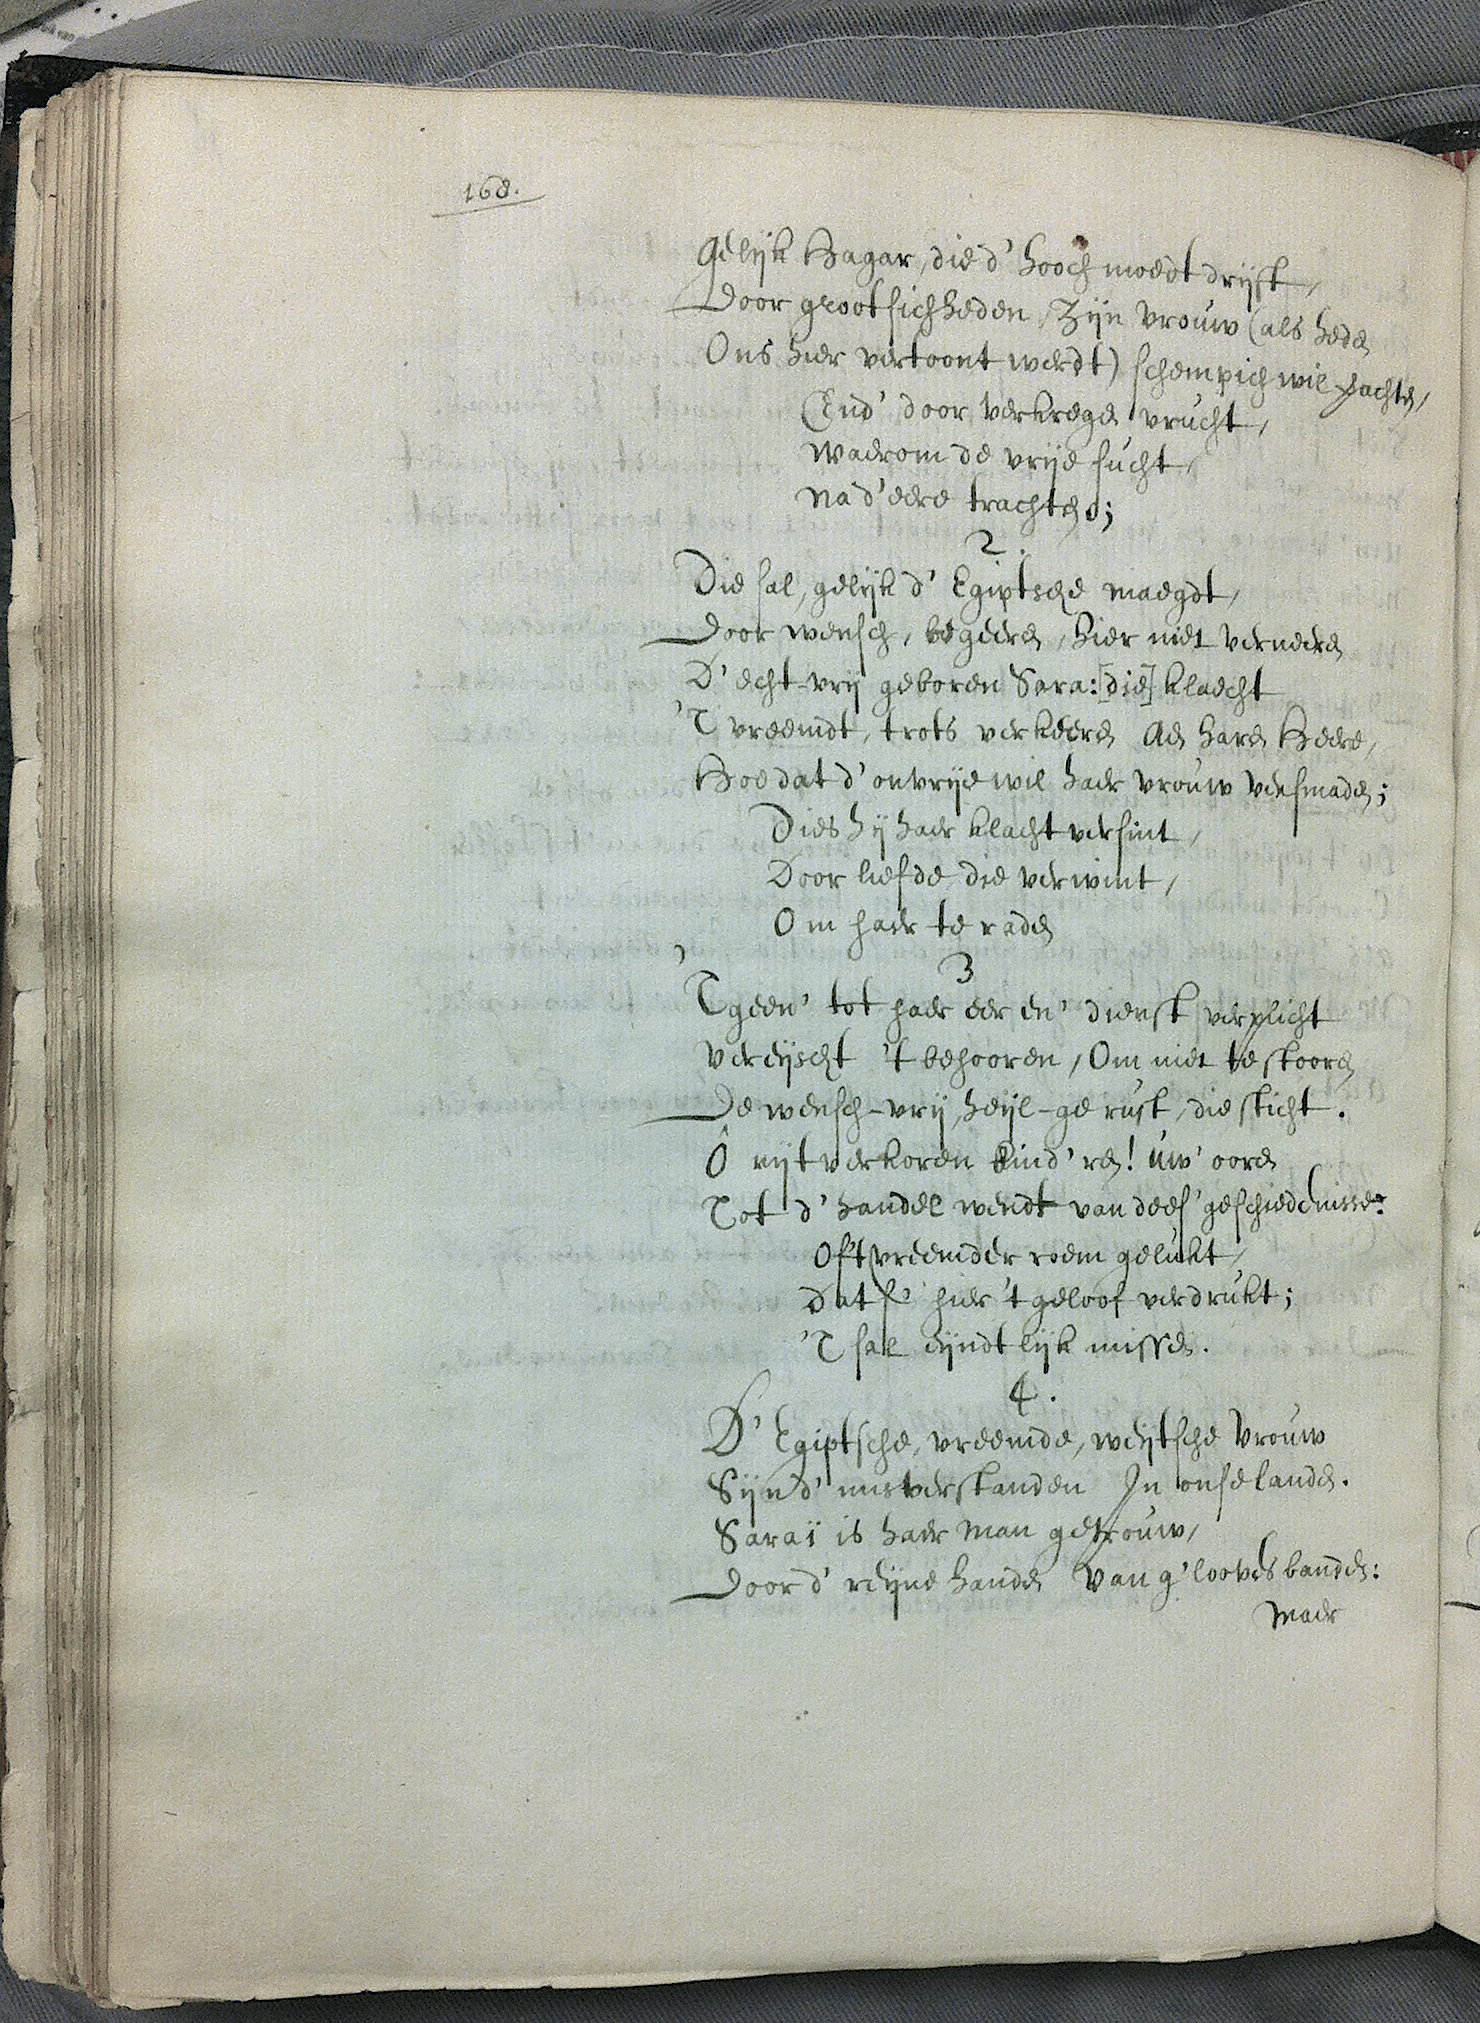 168.
Gelijk Hagar, die d' hooch moedt drijft,
Door grootsichheden, Zijn vrouw (als heden
Ons hier vertoont werdt) schempich wil achten,
End' door verkregen vrucht,
Waerom de vrije sucht,
Na d' eere trachten;
2.
Die sal, gelijk d' Egiptsche maegdt,
Door wensch, begeeren, hier niet verneeren
D' echt-vrij geboren Sara: [die] klaecht
'T vreemdt, trots verkeeren Aen haren Heere,
Hoe dat d' onvrije wil haer vrouw versmaden;
Dies hij haer klacht versint,
Door liefde, die verwint,
Om haer te raden
3
'T geen' tot haer eer en' dienst verplicht
Vereijscht 't behooren, Om niet te stooren
De wensch-vrij, heijl-ge rust, die sticht.
Ô uijtverkoren kind'ren! uw' ooren
Tot d' handel wendt van dees' geschiedenisse:
Of't vreemder roem gelukt,
Dat s' hier 't geloof verdrukt;
'T sal eijndtlijk missen.
4.
D' Egiptsche, vreemde, weijtsche Vrouw
Sijn d' misverstanden In onse landen.
Saraï is haer Man getrouw,
Door d' reijne handen Van g'loovès banden:
Maer